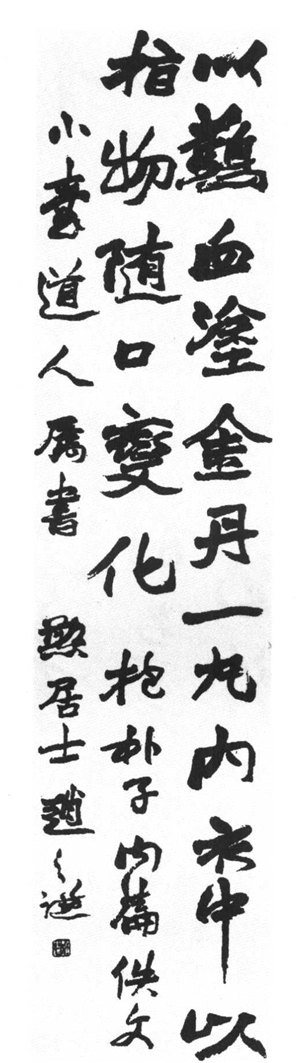 以血塗金丹一丸内衣中以
指物随口變化 抱朴子内篇佚文
小道人屬書 居士趙之謙